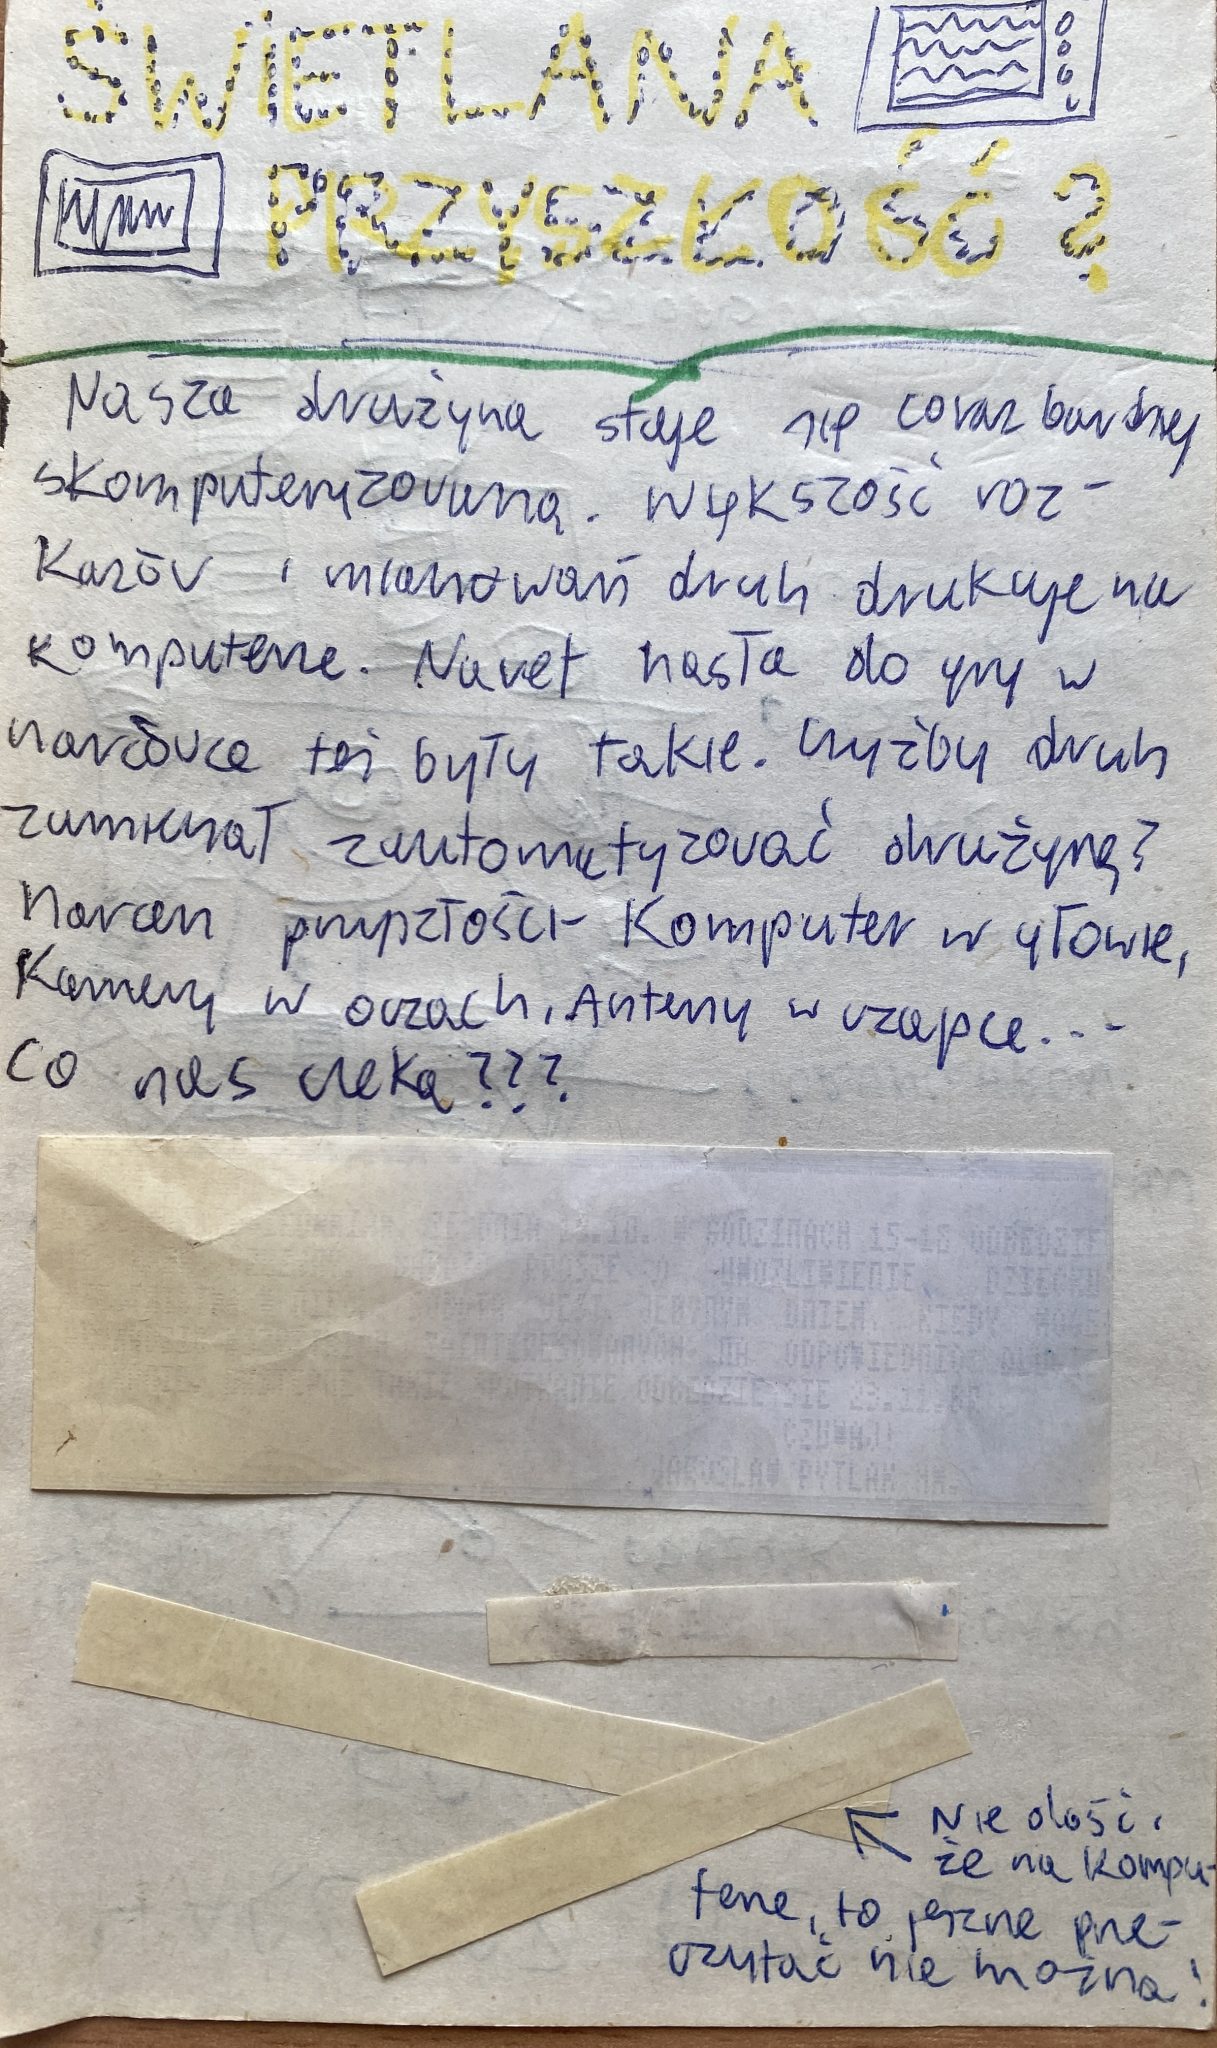 ŚWIETLANA
PRZYSZŁOŚĆ?
Nasza drużyna staje się coraz bardziej
skomputeryzowana. Większość roz-
kazów i mianowań druh drukuje na
komputerze. Nawet hasła do gry w
harcówce też były takie. Czyżby druh
zamierzał zautomatyzować drużynę?
Harcerz przyszłości- Komputer w głowie,
Kamery w oczach, Anteny w czapce...
Co nas czeka???
12.10. W GODZINACH 15-18 ODBĘDZIE
UMOŻLIWIENIE
DNIEM, KIEDY MOŻE
TAKIE SPOTKANIE ODBĘDZIE SIE 23.11.
CZUWAJ!
JAROSLAW PYTLAK HM.
Nie dość,
że na kompu-
terze, to jeszcze prze-
czytać nie można!